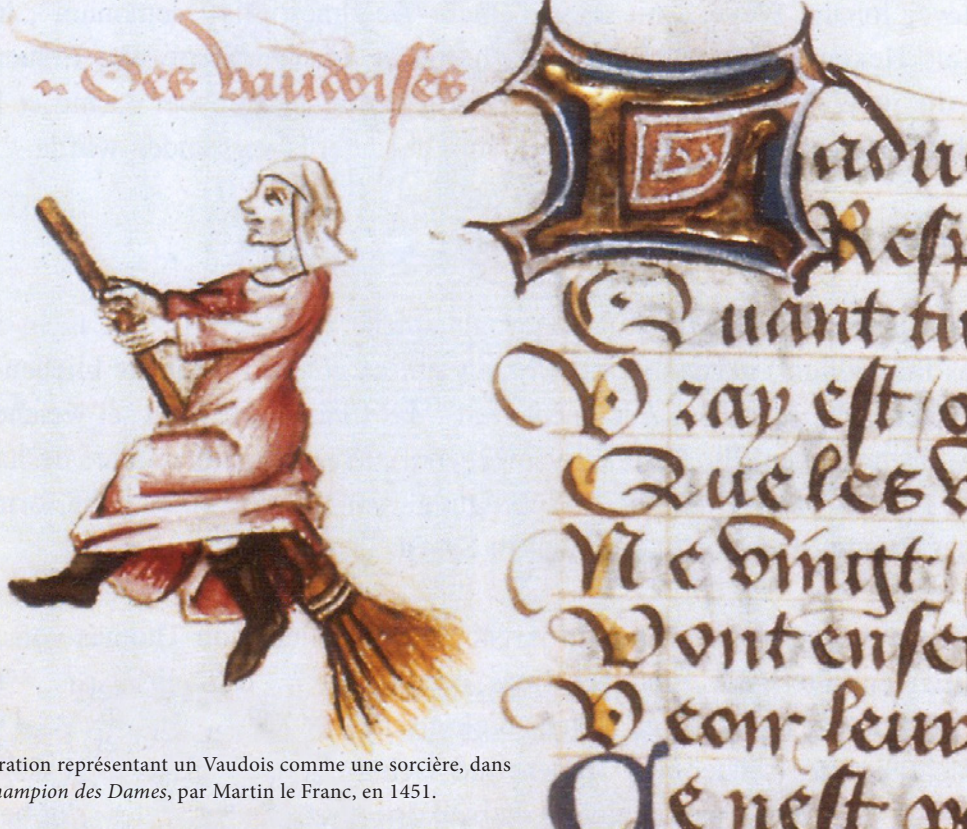 Des vaudoises
Ladu
Resp
Quant tu
Vray est / o
Que les v
Ne vingt /
Vont ense
Veoir leur
Ce nest
ration représentant un Vaudois comme une sorcière, dans
hampion des Dames, par Martin le Franc, en 1451.